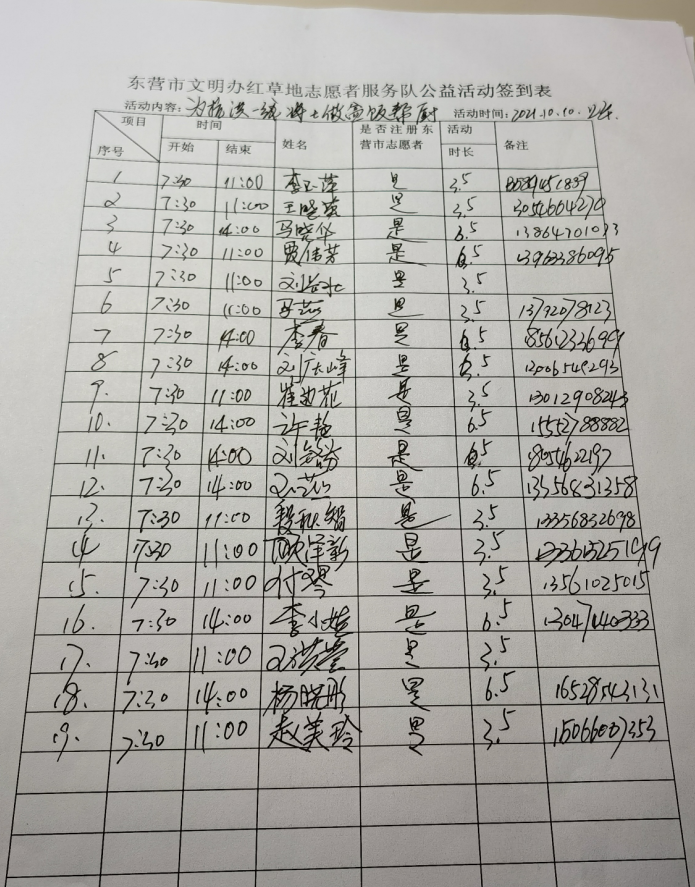 东营市文明办红草地志愿者服务队公益活动签到表
活动内容：为抗洪一线将士做盒饭帮厨 活动时间：2021.10.10.
序号 项目 时间 开始 结束 姓名 是否注册东营市志愿者 活动时长 备注
1 7:30 11:00 李玉萍 是 3.5
2 7:30 11:00 王晓燕 是 3.5
3 7:30 14:00 马晓华 是 6.5 13864701093
4 7:30 11:00 贾伟芳 是 6.5 13963386095
5 7:30 11:00 是 3.5
6 7:30 11:00 是 3.5 13792078123
7 7:30 14:00 李春 是 6.5
8 7:30 14:00 刘广峰 是 6.5 13006549293
9. 7:30 11:00 是 3.5 13012908243
10. 7:30 14:00 许艳 是 6.5 15552788882
11. 7:30 14:00 是 6.5
12. 7:30 14:00 是 6.5 13356831358
13. 7:30 11:00 是 3.5 13356832698
14 7:30 11:00 是 3.5
15. 7:30 11:00 付琴 是 3.5 13561025015
16. 7:30 14:00 是 6.5 13047440333
17. 7:30 11:00 是 3.5
18. 7:30 14:00 杨晓彤 是 6.5 16528543131
19. 7:30 11:00 赵美玲 是 3.5 15066007353